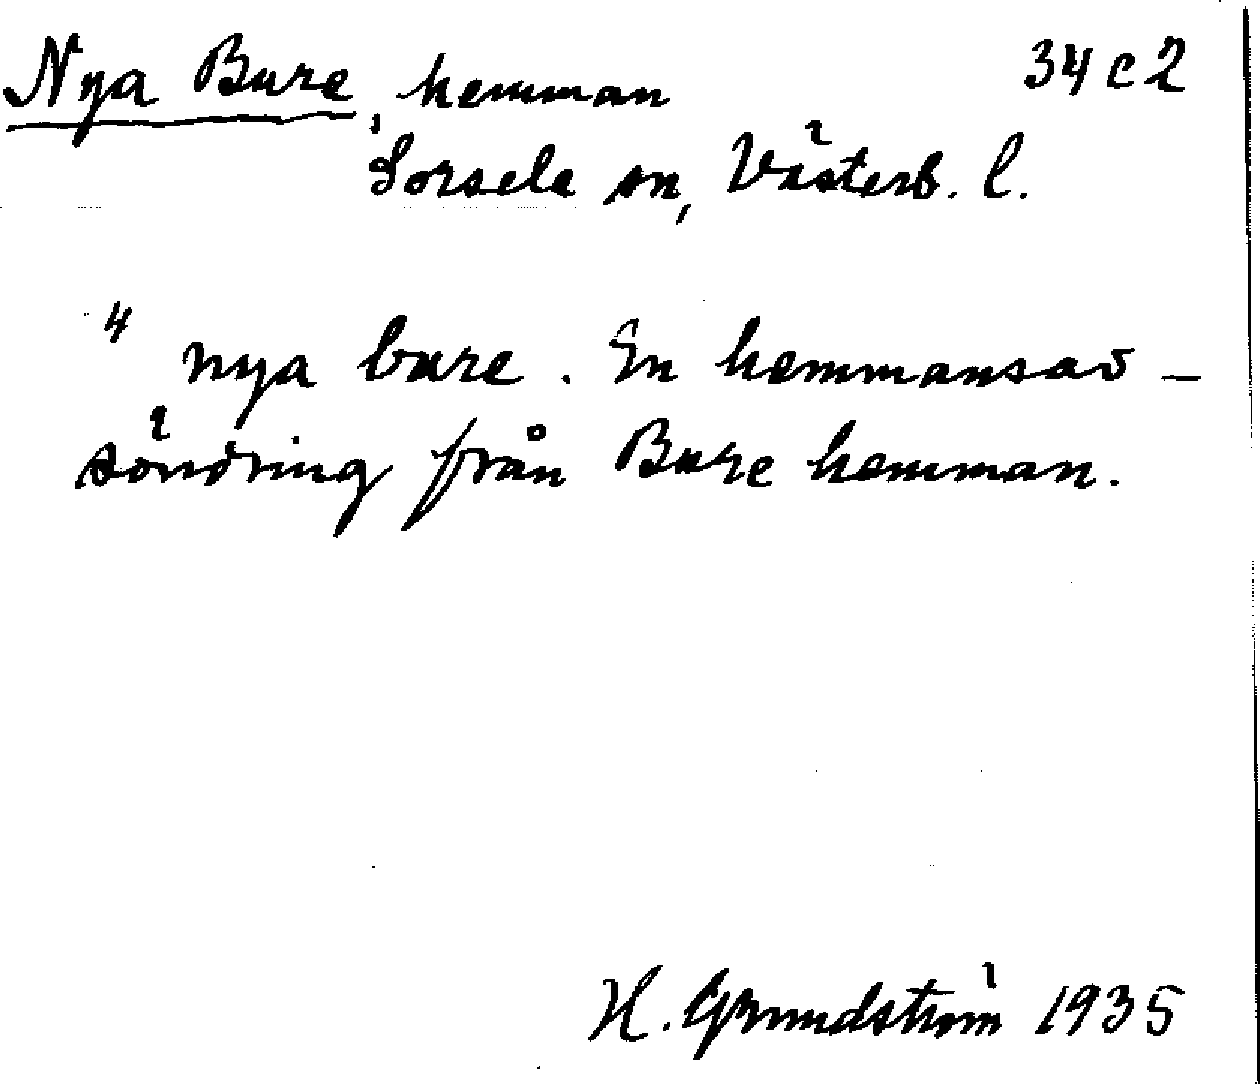 Nya Bure, hemman 34 c 2
Sorsele sn, Västerb. l.
" nya bure. En hemmansav-
söndring från Bure hemman.
H. Grundström 1935